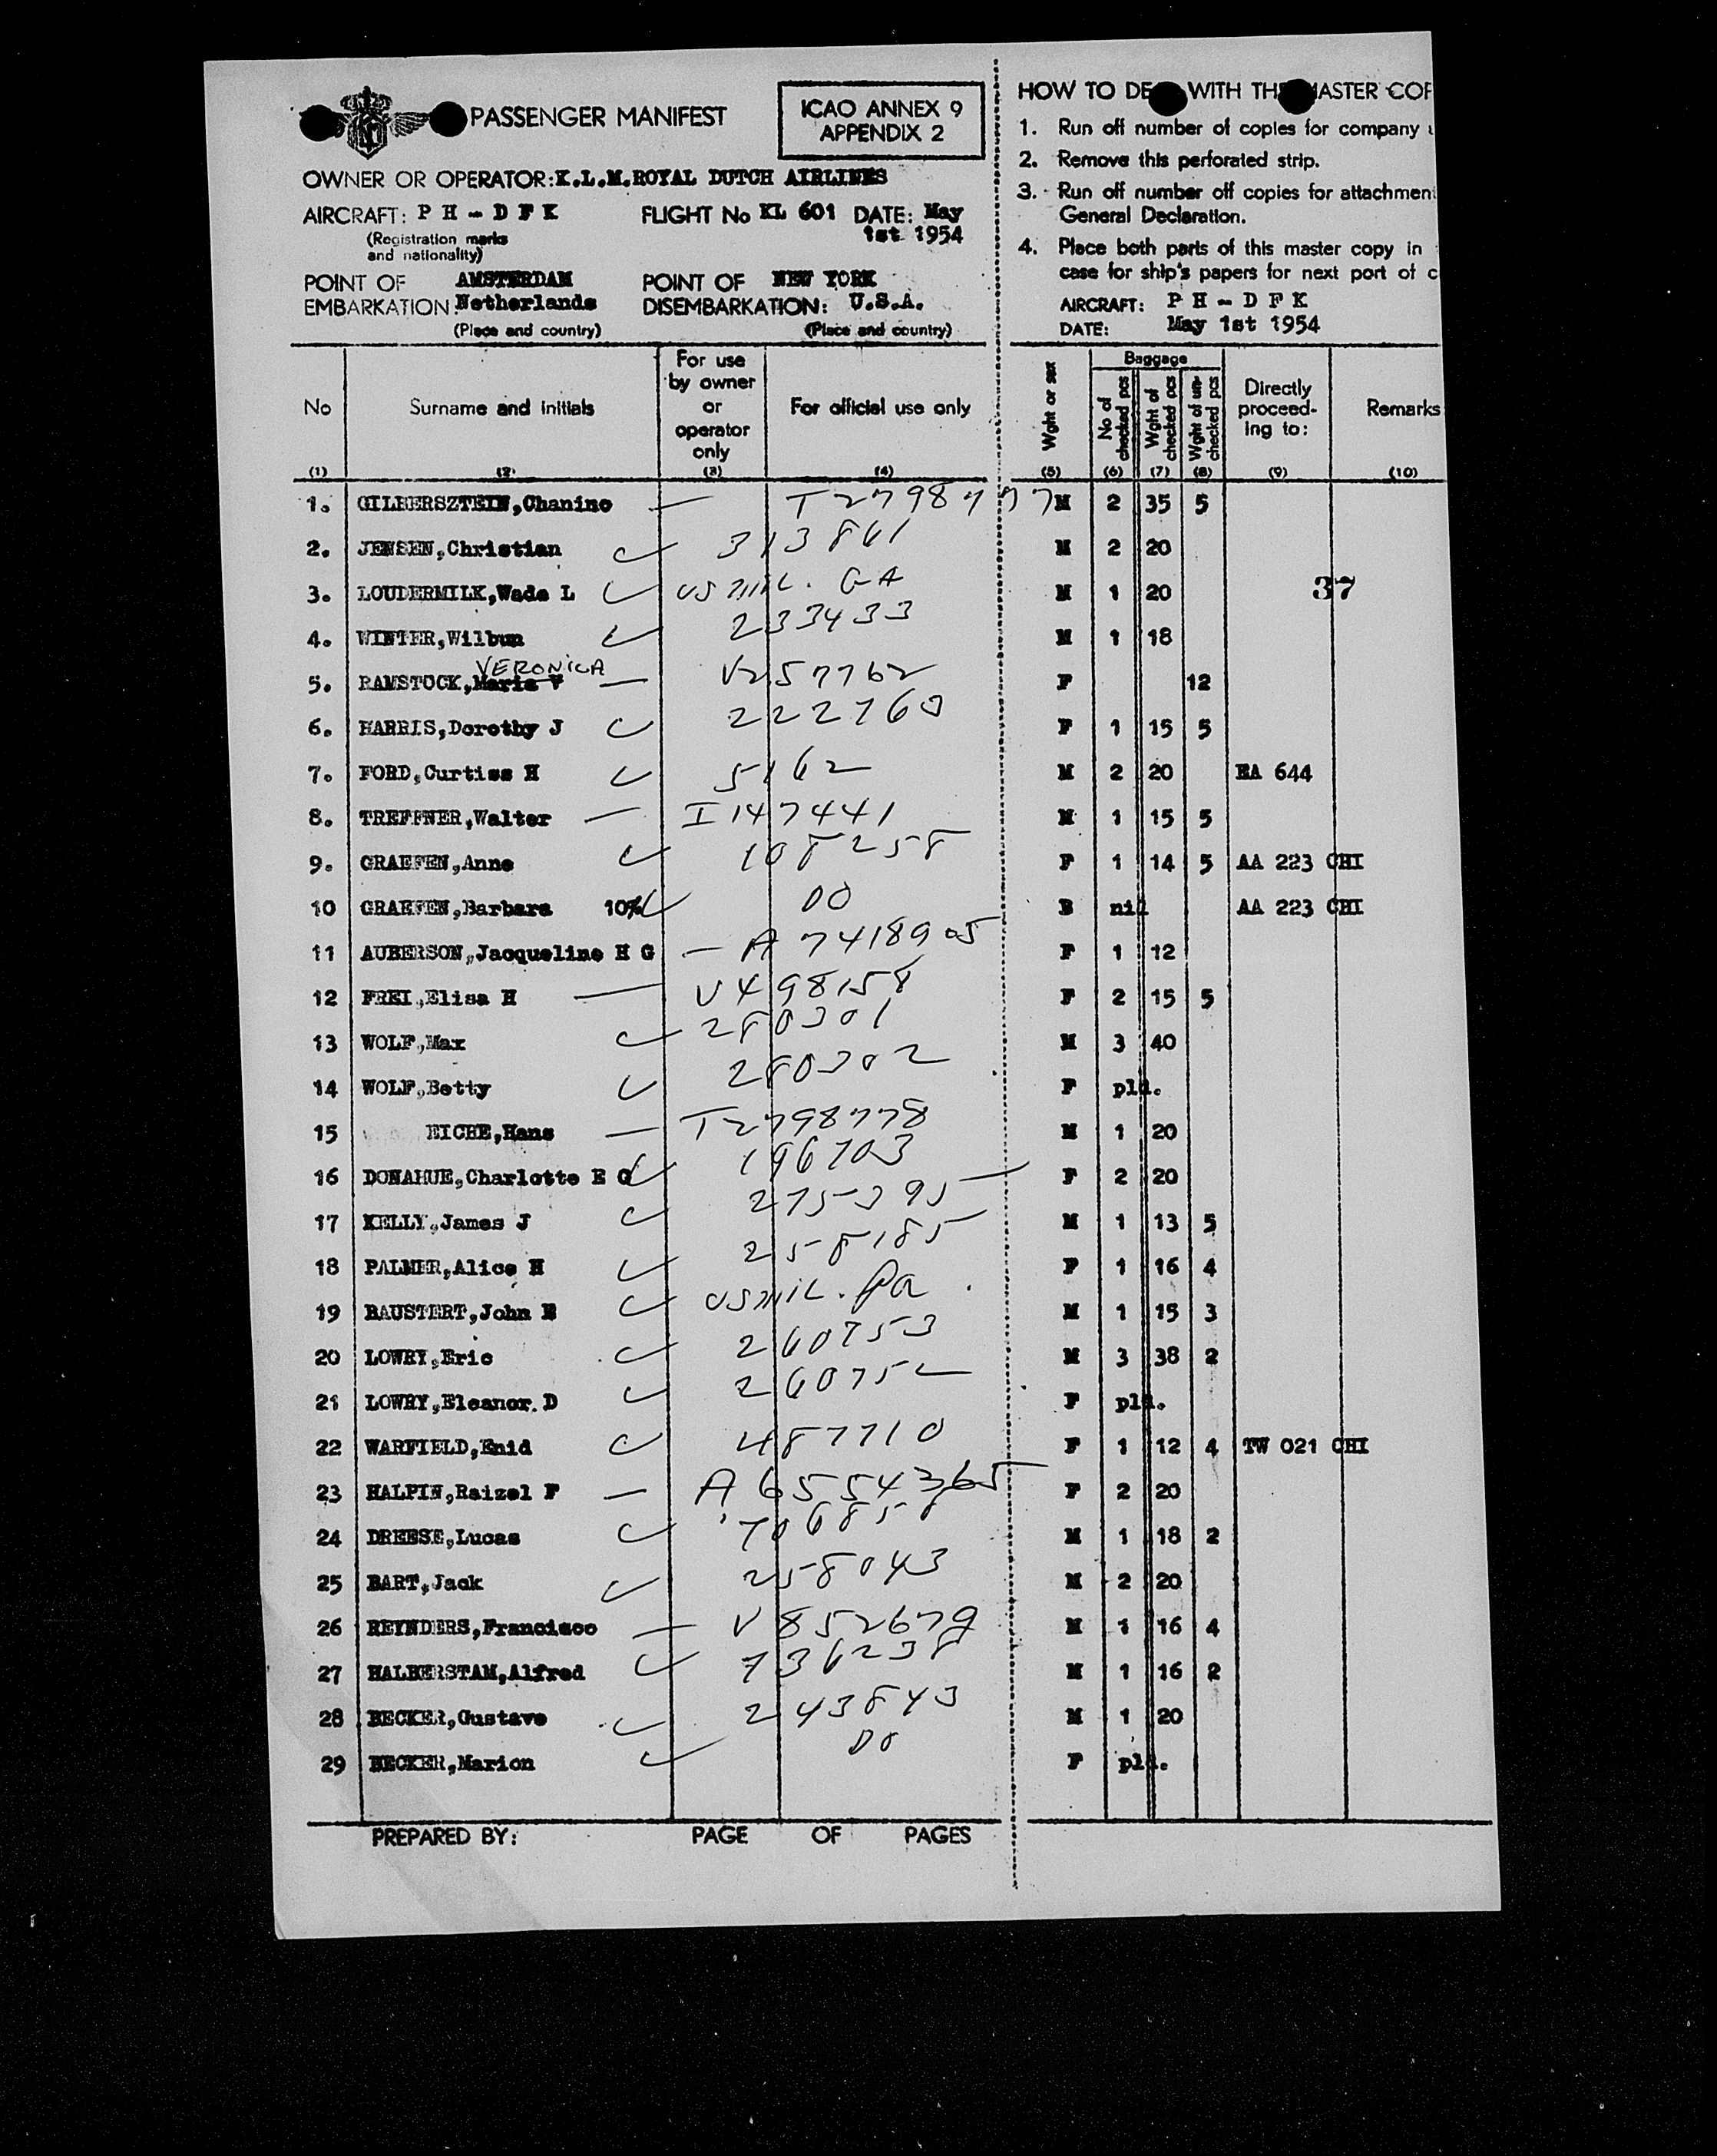 PASSENGER MANIFEST
ICAO ANNEX 9
APPENDIX 2
OWNER OR OPERATOR: K.L.M. ROYAL DUTCH AIRLINES
AIRCRAFT: P H - D F K FLIGHT No KL 601 DATE: May 1st 1954
(Registration marks and nationality)
POINT OF EMBARKATION: AMSTERDAM Netherlands
POINT OF DISEMBARKATION: NEW YORK U.S.A.
(Place and country) (Place and country)
HOW TO DE WITH TH ASTER COP
1. Run off number of copies for company
2. Remove this perforated strip.
3. Run off number off copies for attachment
General Declaration.
4. Place both parts of this master copy in
case for ship's papers for next port of c
AIRCRAFT: P H - D F K
DATE: May 1st 1954
No Surname and initials For use by owner or operator only For official use only Wght or sex Baggage No of checked pcs Wght of checked pcs Wght of un-checked pcs Directly proceed-ing to: Remarks
(1) (2) (3) (4) (5) (6) (7) (8) (9) (10)
1. GILBERSZTEIN, Chanino — T2798777 M 2 35 5
2. JENSEN, Christian ✓ 313861 M 2 20
3. LOUDERMILK, Wade L ✓ US MIL. GA M 1 20 37
4. WINTER, Wilbum ✓ 233433 M 1 18
VERONICA
5. RAMSTOCK, Maria V — V257762 F 12
6. HARRIS, Dorothy J ✓ 222760 F 1 15 5
7. FORD, Curtiss H ✓ 5162 M 2 20 EA 644
8. TREFFNER, Walter — I147441 M 1 15 5
9. GRAEFEN, Anne ✓ 108258 F 1 14 5 AA 223 CHI
10 GRAEFEN, Barbara 10% ✓ DO B nil AA 223 CHI
11 AUBERSON, Jacqueline H G — A 7418905 F 1 12
12 FREI, Elisa H — V498158 F 2 15 5
13 WOLF, Max ✓ 280301 M 3 40
14 WOLF, Betty ✓ 280302 F pld.
15 EICHE, Hans — T2798778 M 1 20
16 DONAHUE, Charlotte E G ✓ 196703 F 2 20
17 KELLY, James J ✓ 275395 M 1 13 5
18 PALMER, Alice H ✓ 258185 F 1 16 4
19 BAUSTERT, John E ✓ US MIL. Pa. M 1 15 3
20 LOWRY, Eric ✓ 260753 M 3 38 2
21 LOWRY, Eleanor. D ✓ 260752 F pld.
22 WARFIELD, Enid ✓ 487710 F 1 12 4 TW 021 CHI
23 HALPIN, Raizel F — A 6554365 F 2 20
24 DREESE, Lucas ✓ 706858 M 1 18 2
25 BART, Jack ✓ 258043 M 2 20
26 REYNDERS, Francisco — V852679 M 1 16 4
27 HALBERSTAM, Alfred ✓ 736238 M 1 16 2
28 BECKER, Gustave ✓ 243843 M 1 20
29 BECKER, Marion ✓ DO F pld.
PREPARED BY: PAGE OF PAGES